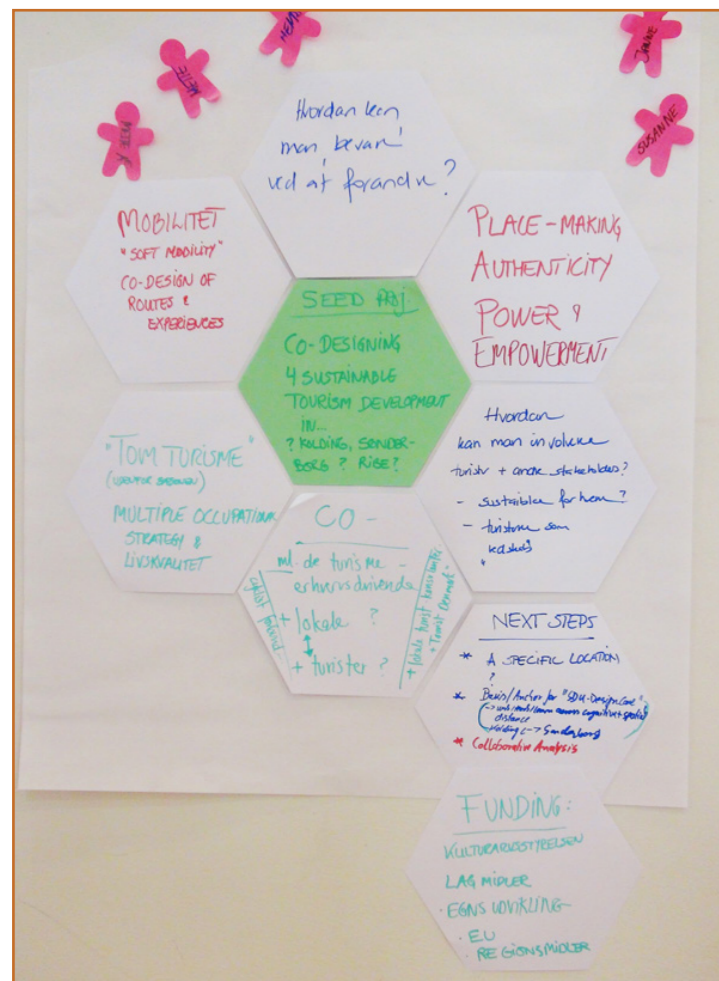 METTE
JANNE
SUSANNE
Hvordan kan
man 'bevare'
ved at forandre?
MOBILITET
"SOFT MOBILITY"
CO-DESIGN OF
ROUTES &
EXPERIENCES
PLACE-MAKING
AUTHENTICITY
POWER &
EMPOWERMENT
SEED PROJ.
CO-DESIGNING
4 SUSTAINABLE
TOURISM DEVELOPMENT
IN...
? KOLDING, SØNDER-
BORG? RIBE?
"TOM TURISME"
MULTIPLE OCCUPATIONAL
STRATEGI &
LIVSKVALITET
Hvordan
kan man involvere
turister + andre stakeholders?
- sustainable for hvem?
- turisterne som
CO-
ml. de turisme-
erhvervsdrivende
+ lokale ?
+ turister ?
+ lokale turist konsulenter
NEXT STEPS
* A SPECIFIC LOCATION
?
* Basis/Anchor for "SDU-Design Core"
distance
Kolding <-> Sønderborg
* Collaborative Analysis
FUNDING:
KULTURARVSSTYRELSEN
LAG MIDLER
· EGNSUDVIKLING
· EU
REGIONSMIDLER